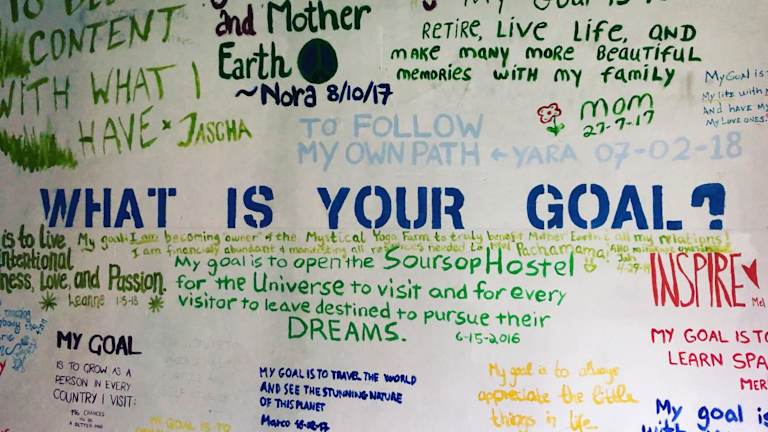 CONTENT
WITH WHAT I
HAVE JASCHA
and Mother
Earth
~Nora 8/10/17
RETIRE, LIVE LIFE, AND
MAKE MANY MORE BEAUTIFUL
MEMORIES WITH MY FAMILY
MOM
27-7-17
My Goal is
My life with
And have my
My Love ones.
TO FOLLOW
MY OWN PATH ← YARA 07-02-18
WHAT IS YOUR GOAL?
is to live
Intentional
ness, Love, and Passion.
Leanne 1-5-18
My goal: I am becoming owner of the Mystical Yoga Farm to truly benefit Mother Earth & all my relations!
I am financially abundant & manifesting all resources needed Pachamama!
My goal is to open the Soursop Hostel
for the Universe to visit and for every
visitor to leave destined to pursue their
DREAMS.
6-15-2016
INSPIRE
Mel
MY GOAL IS TO
LEARN SPA
MER
MY GOAL
IS TO GROW AS A
PERSON IN EVERY
COUNTRY I VISIT:
MY GOAL IS TO TRAVEL THE WORLD
AND SEE THE STUNNING NATURE
OF THIS PLANET
Marco 18-08-17
My goal is to always
appreciate the little
things in life
MY GOAL IS TO
My goal is